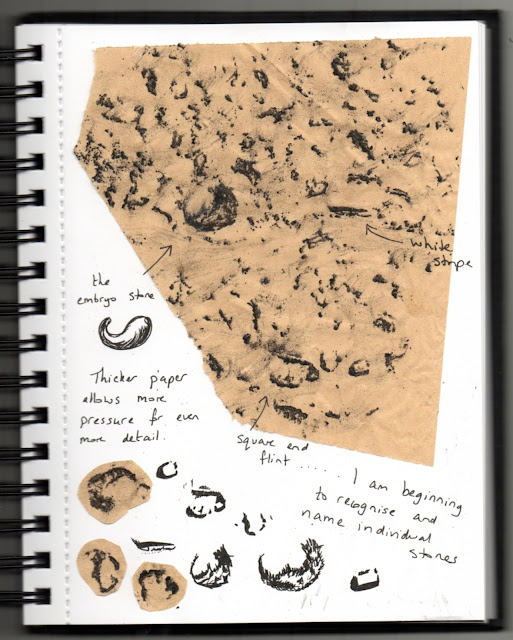 white
stripe
the
embryo stone
Thicker paper
allows more
pressure for even
more detail.
square end
flint ......
I am beginning
to recognise and
name individual
stones